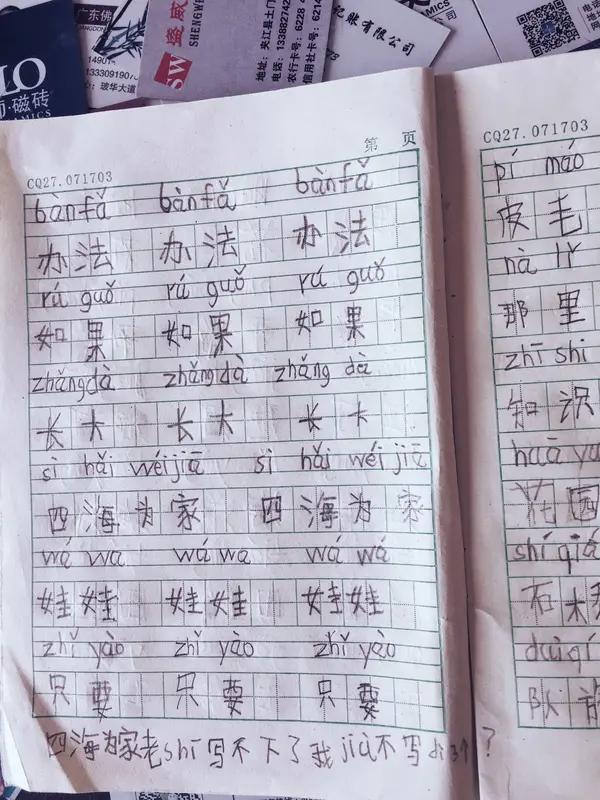 广东佛
1333091970
玻华大道
LO
·磁砖
SW
盛威
SHENGWE
地址:夹江县土门
电话:13388274
农行卡号:6228 4
信用社卡号:6214
记账有限公司
第 页
CQ27.071703
bàn fǎ bàn fǎ bàn fǎ
办法 办法 办法
rú guǒ rú guǒ rú guǒ
如果 如果 如果
zhǎng dà zhǎng dà zhǎng dà
长大 长大 长大
sì hǎi wéi jiā sì hǎi wéi jiā
四海为家 四海为家
wá wa wá wa wá wá
娃娃 娃娃 娃娃
zhǐ yào zhǐ yào zhǐ yào
只要 只要 只要
四海为家老shī写不下了我jiù不写
?
CQ27.071703
pí máo
皮毛
nà lǐ
那里
zhī shi
知识
huā yu
花园
shí qiá
石
duì qí
队